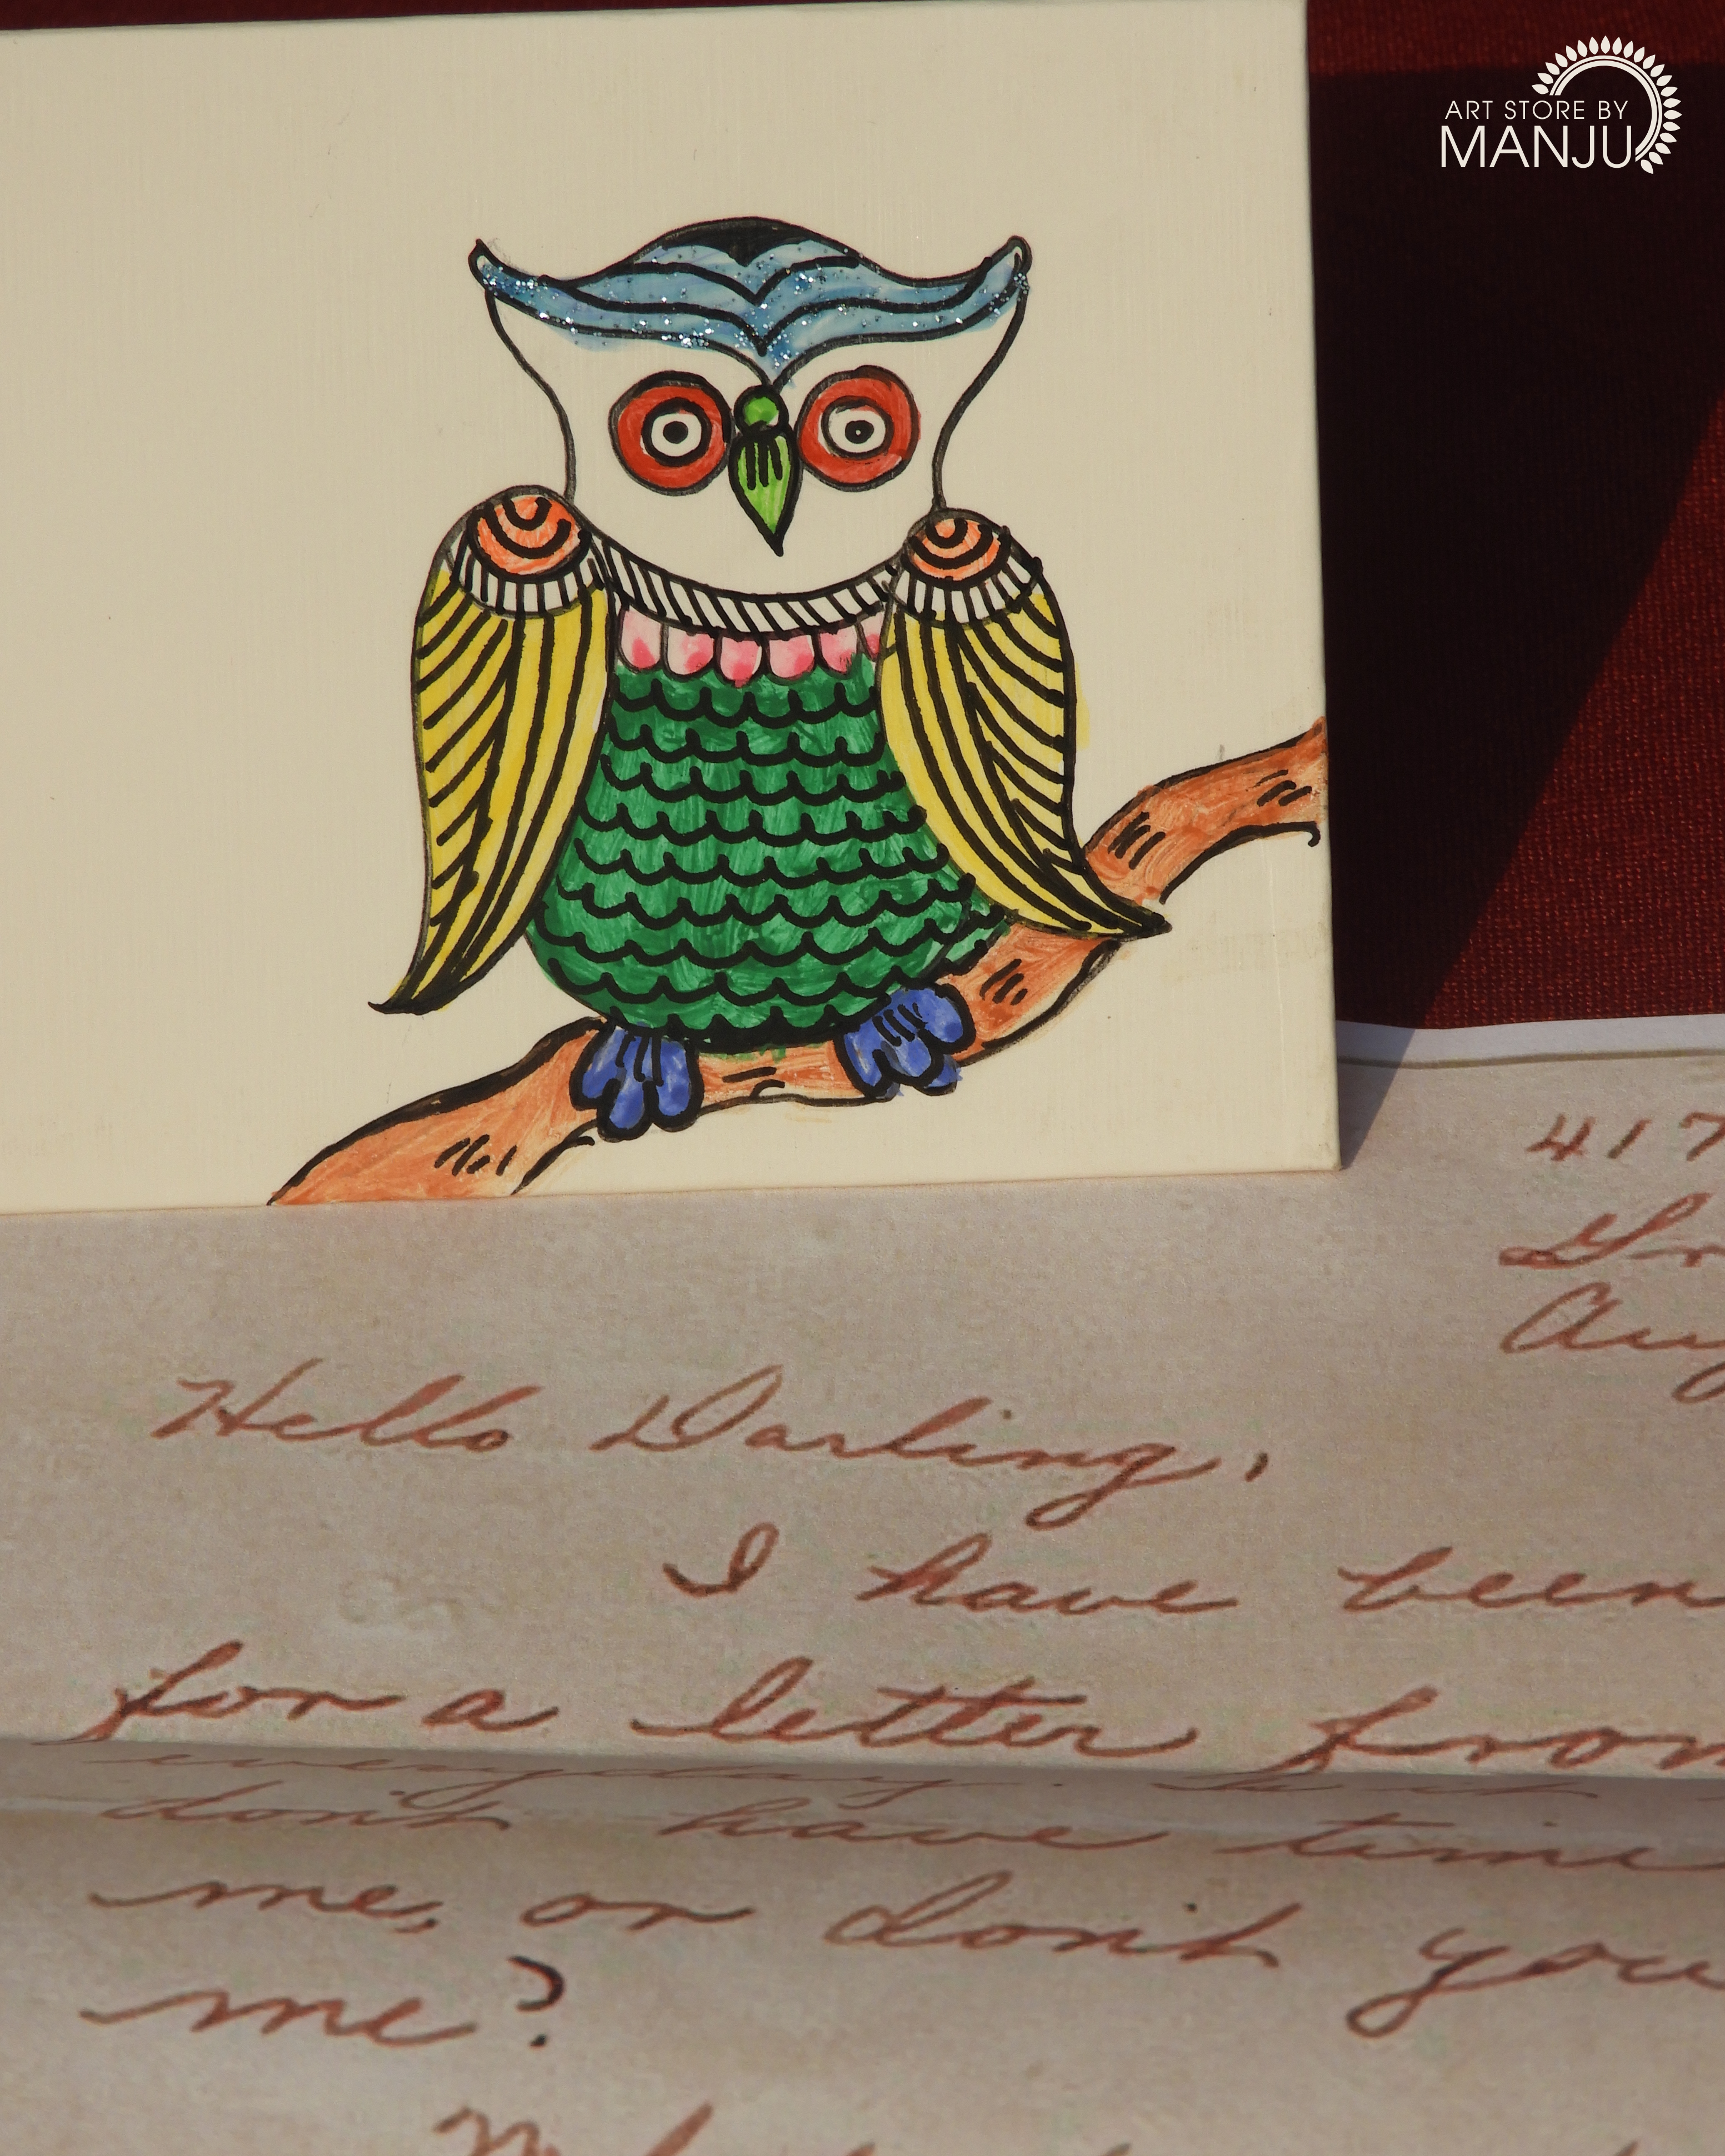 ART STORE BY
MANJU
417
Hello Darling,
I have been
for a letter from
everyday. But
don't have time
me, or don't you
me?